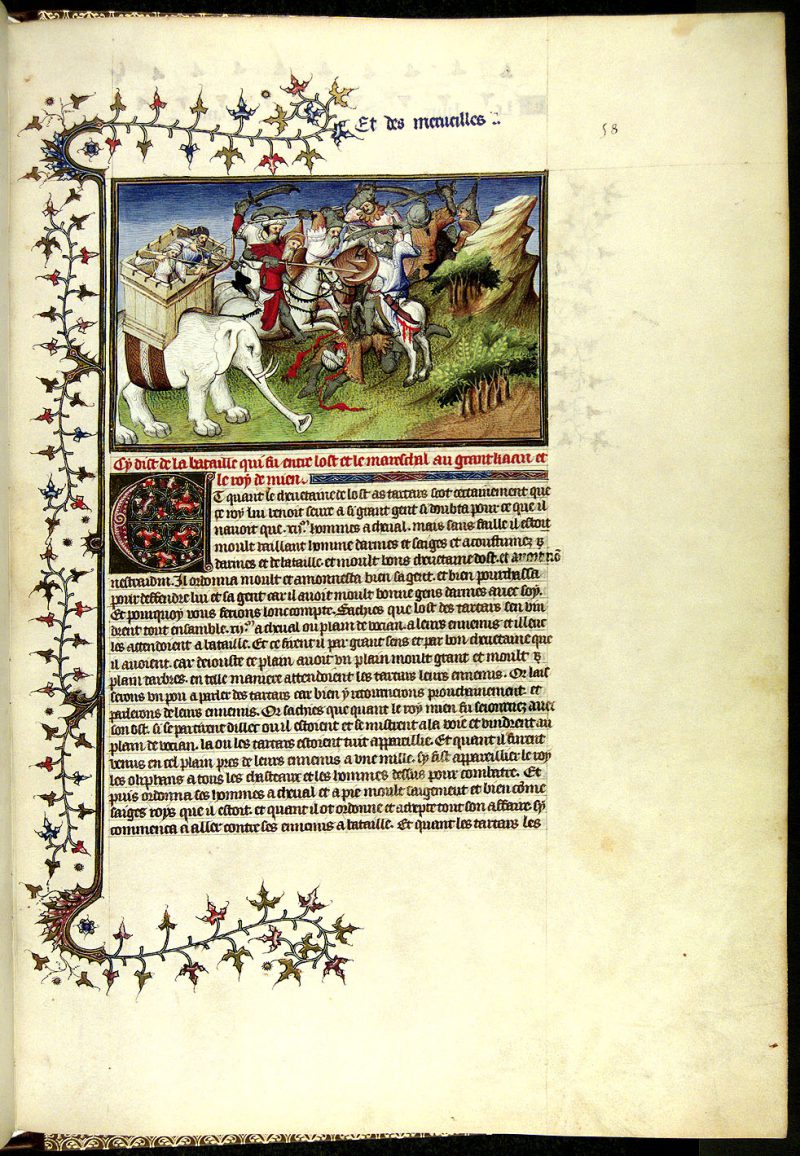 Et des merueilles
58
Cy dist de la bataille qui fu entre lost et le mareschal au grant kaan et
le roy de mien
Et quant le cheuetaine de lost as tartars scot certainement que
ce roy lui venoit seure a si grant gent si doubta pour ce que il
nauoit que .xii.m hommes a cheual. mais sans faille il estoit
moult vaillant homme darmes et saiges et acoustumez
darmes et de bataille et moult bons cheuetaine dost. et auoit nō
nestraidin. Il ordonna moult et amonnesta bien sa gent. et bien pourchassa
pour deffendre lui et sa gent car il auoit moult bonne gens darmes auec soy.
Et pourquoy vous ferons lonc compte. Sachies que lost des tartars sen vin
drent tout ensamble .xii.m a cheual ou plain de vocian. a leurs ennemis et illeuc
les attendoient a bataille. Et ce firent il par grant sens et par bon cheuetaine que
il auoient. car deiouste ce plain auoit vn plain moult grant et moult
plain darbres. en telle maniere attendoient les tartars leurs ennemis. Or lais
serons vn pou a parler des tartars car bien y retournerons prouchainement. et
parlerons de leurs ennemis. Or sachies que quant le roy mien fu auec
son ost. si se partirent dillec ou il estoient et se mistrent a la voie et vindrent au
plain de vocian. la ou les tartars estoient tuit appareillie. Et quant il furent
venus en cel plain pres de leurs ennemis a vne mille. sy fist appareillier le roy
les oliphans a tous les chasteaux et les hommes dessus pour combatre. Et
puis ordonna ses hommes a cheual et a pie moult saigement et bien cōme
saiges roys que il estoit. et quant il ot ordonne et tout son affaire. sy
commenca a aller contre ses ennemis a bataille. Et quant les tartars les